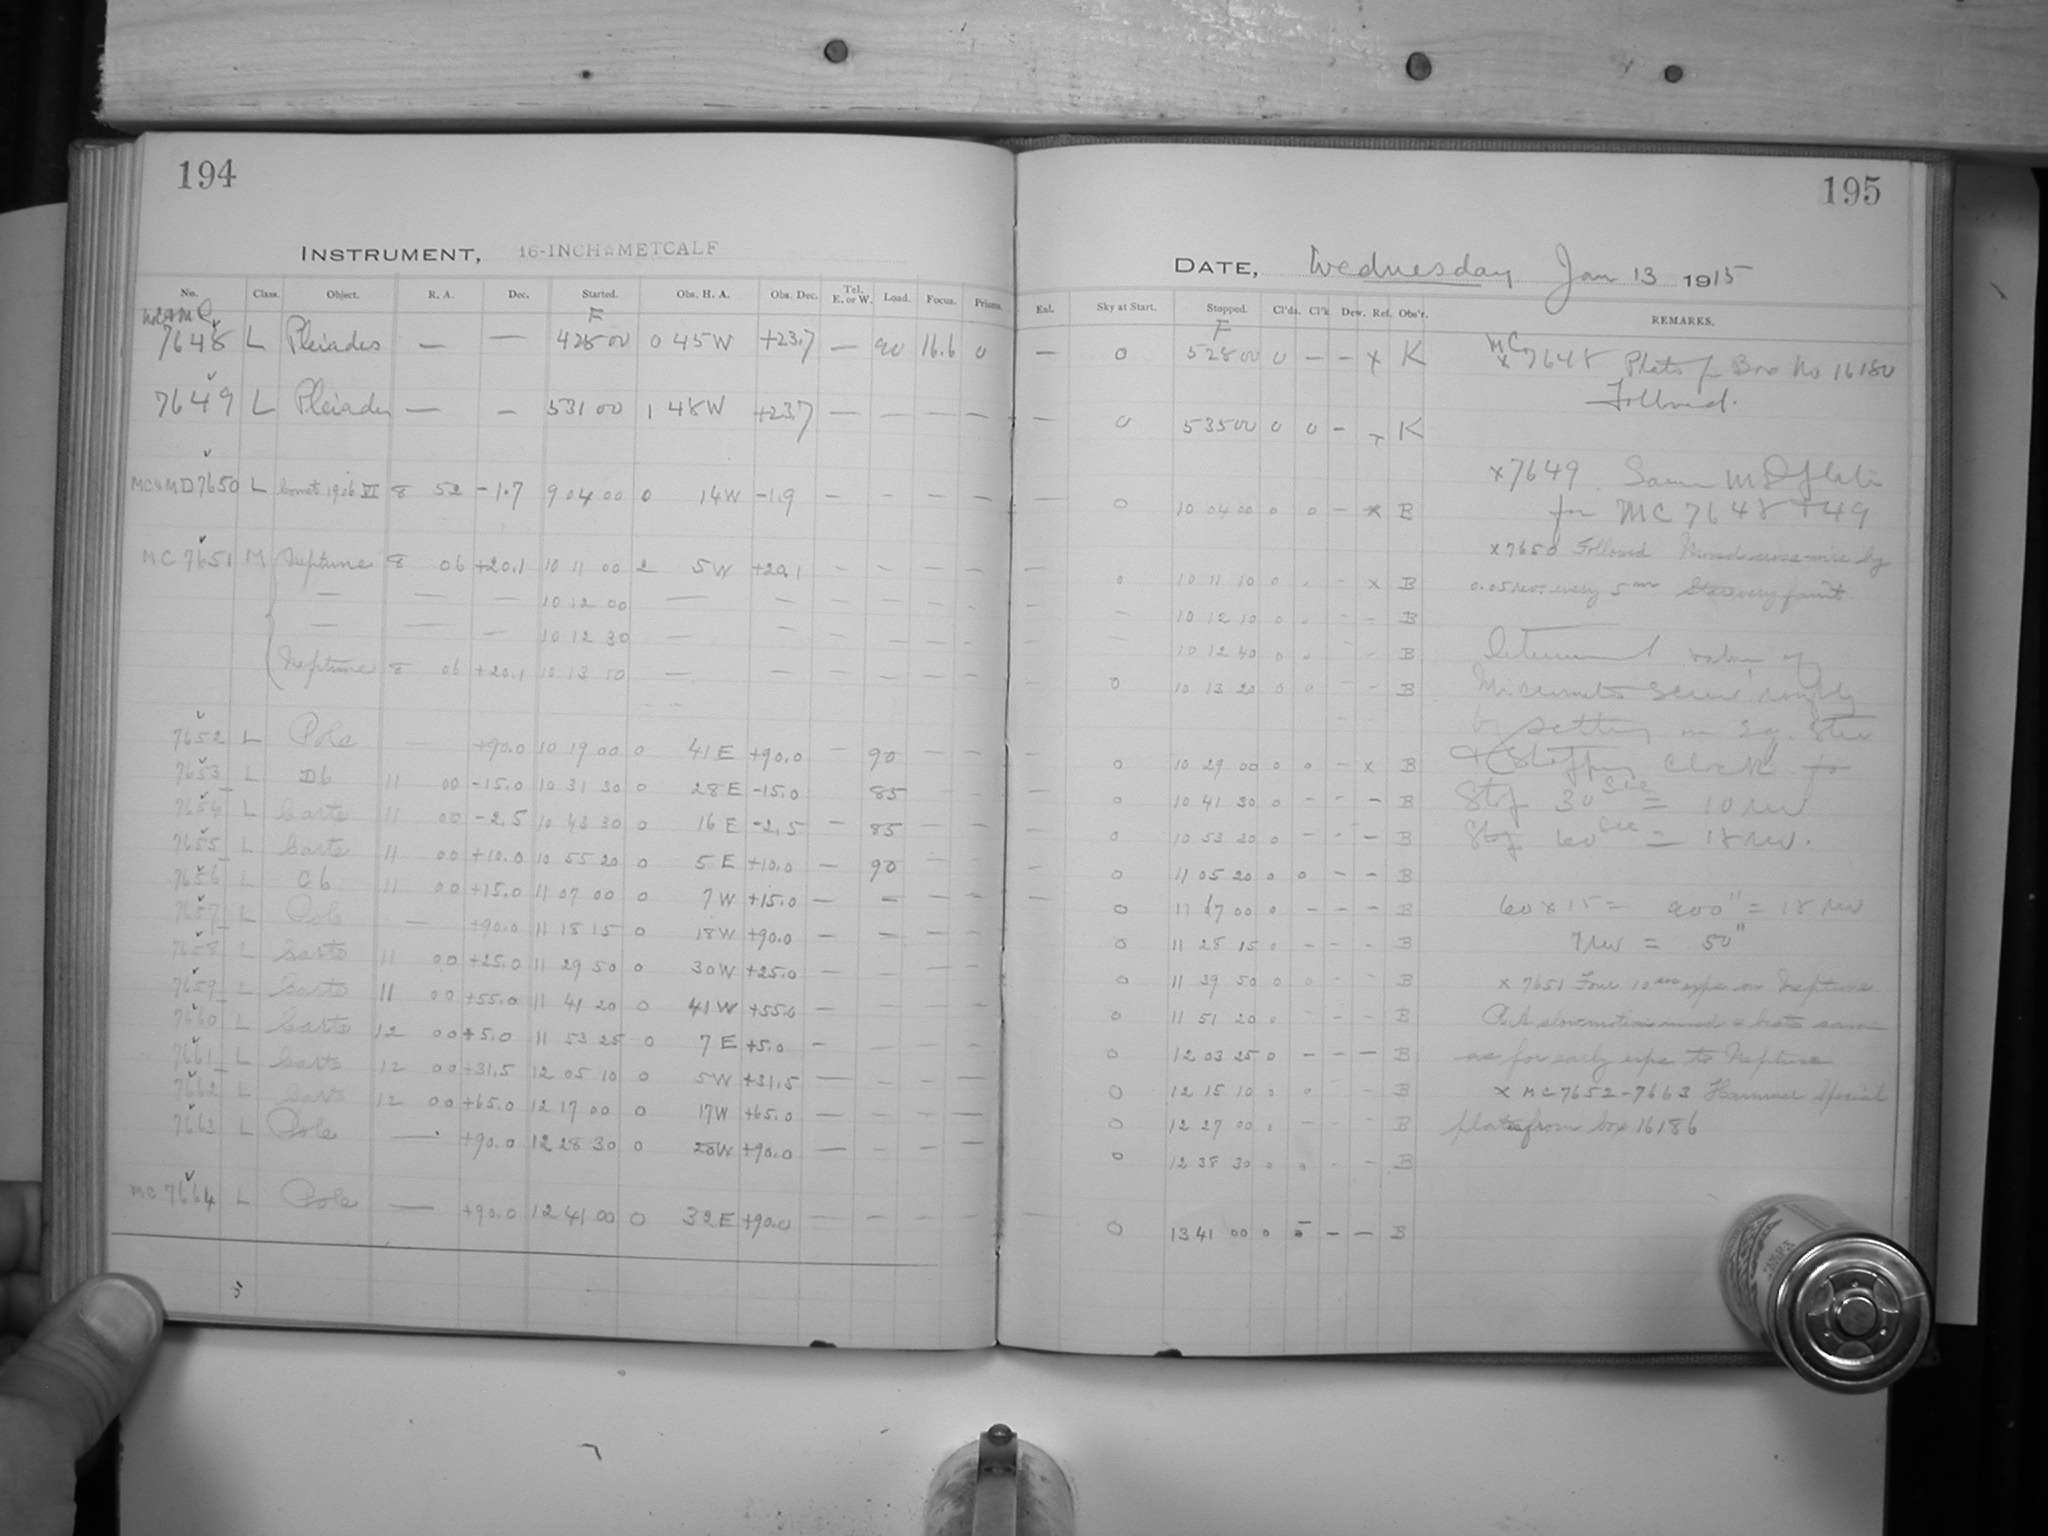 194
INSTRUMENT, 16-INCH METCALF
No. Class. Object. R. A. Dec. Started. Obs. H. A. Obs. Dec. Tel. E. or W. Load. Focus. Prisms.
F
7648 L Pleiades — — 4 28 00 0 45 W +23.7 — 90 16.6 0
7649 L Pleiades — — 5 31 00 1 48 W +23.7 — — — —
MC & MD 7650 L Comet 1906 VI 8 52 -1.7 9 04 00 0 14 W -1.9 — — — —
MC 7651 M Neptune 8 06 +20.1 10 11 00 2 5 W +20.1 — — — —
— — — 10 12 00 — — — — — —
— — — 10 12 30 — — — — — —
Neptune 8 06 +20.1 10 13 10 — — — — — —
7652 L Pole — +90.0 10 19 00 0 41 E +90.0 — 90 — —
7653 L D6 11 00 -15.0 10 31 30 0 28 E -15.0 85
7654 L Carte 11 00 -2.5 10 43 30 0 16 E -2.5 — 85 — —
7655 L Carte 11 00 +10.0 10 55 20 0 5 E +10.0 — 90 — —
7656 L C6 11 00 +15.0 11 07 00 0 7 W +15.0 — — — —
7657 L Pole — +90.0 11 18 15 0 18 W +90.0 — — — —
7658 L Carte 11 00 +25.0 11 29 50 0 30 W +25.0 — — — —
7659 L Carte 11 00 +55.0 11 41 20 0 41 W +55.0 — — — —
7660 L Carte 12 00 +5.0 11 53 25 0 7 E +5.0 — — — —
7661 L Carte 12 00 +31.5 12 05 10 0 5 W +31.5 — — — —
7662 L Carte 12 00 +65.0 12 17 00 0 17 W +65.0 — — — —
7663 L Pole — +90.0 12 28 30 0 28 W +90.0 — — — —
MC 7664 L Pole — +90.0 12 41 00 0 32 E +90.0 — — — —
195
DATE, Wednesday Jan 13 1915
Exl. Sky at Start. Stopped. Cl'ds. Cl'k. Dew. Ref. Obs'r. REMARKS.
F
— 0 5 28 00 0 — — x K
— 0 5 35 00 0 0 — K
— 0 10 04 00 0 0 — x B
— 0 10 11 10 0 0 — x B
— 10 12 10 0 0 — — B
— 10 12 40 0 0 — B
0 10 13 20 0 0 — — B
— 0 10 29 00 0 0 — x B
0 10 41 30 0 — — — B
— 0 10 53 30 0 — — — B
— 0 11 05 20 0 0 — — B
— 0 11 17 00 0 — — — B
0 11 28 15 0 — — — B
0 11 39 50 0 0 — — B
0 11 51 20 0 — — — B
0 12 03 25 0 — — — B
0 12 15 10 0 0 — — B
0 12 27 00 0 — — — B
0 12 38 30 0 0 — — B
— 0 13 41 00 0 5 — — B
MC
x 7648 Plate fr Box No 16180
Followed.
x 7649 Same MD plate
for MC 7648 + 49
x 7650 Followed Moved cross wire by
0.05 rev. every 5m Stars very faint
Determined value of
Micrometer Screw roughly
by setting on Eq. Star
& Stopping Clock
Stop 30 sec = 10 rev
Stop 60 sec = 18 rev.
60 x 15 = 900" = 18 rev
1 rev = 50"
x 7651 Four 10 sec exps on Neptune
R.A slow motion moved & beats same
as for early exps to Neptune
x MC 7652-7663 Hammer Special
plates from box 16186